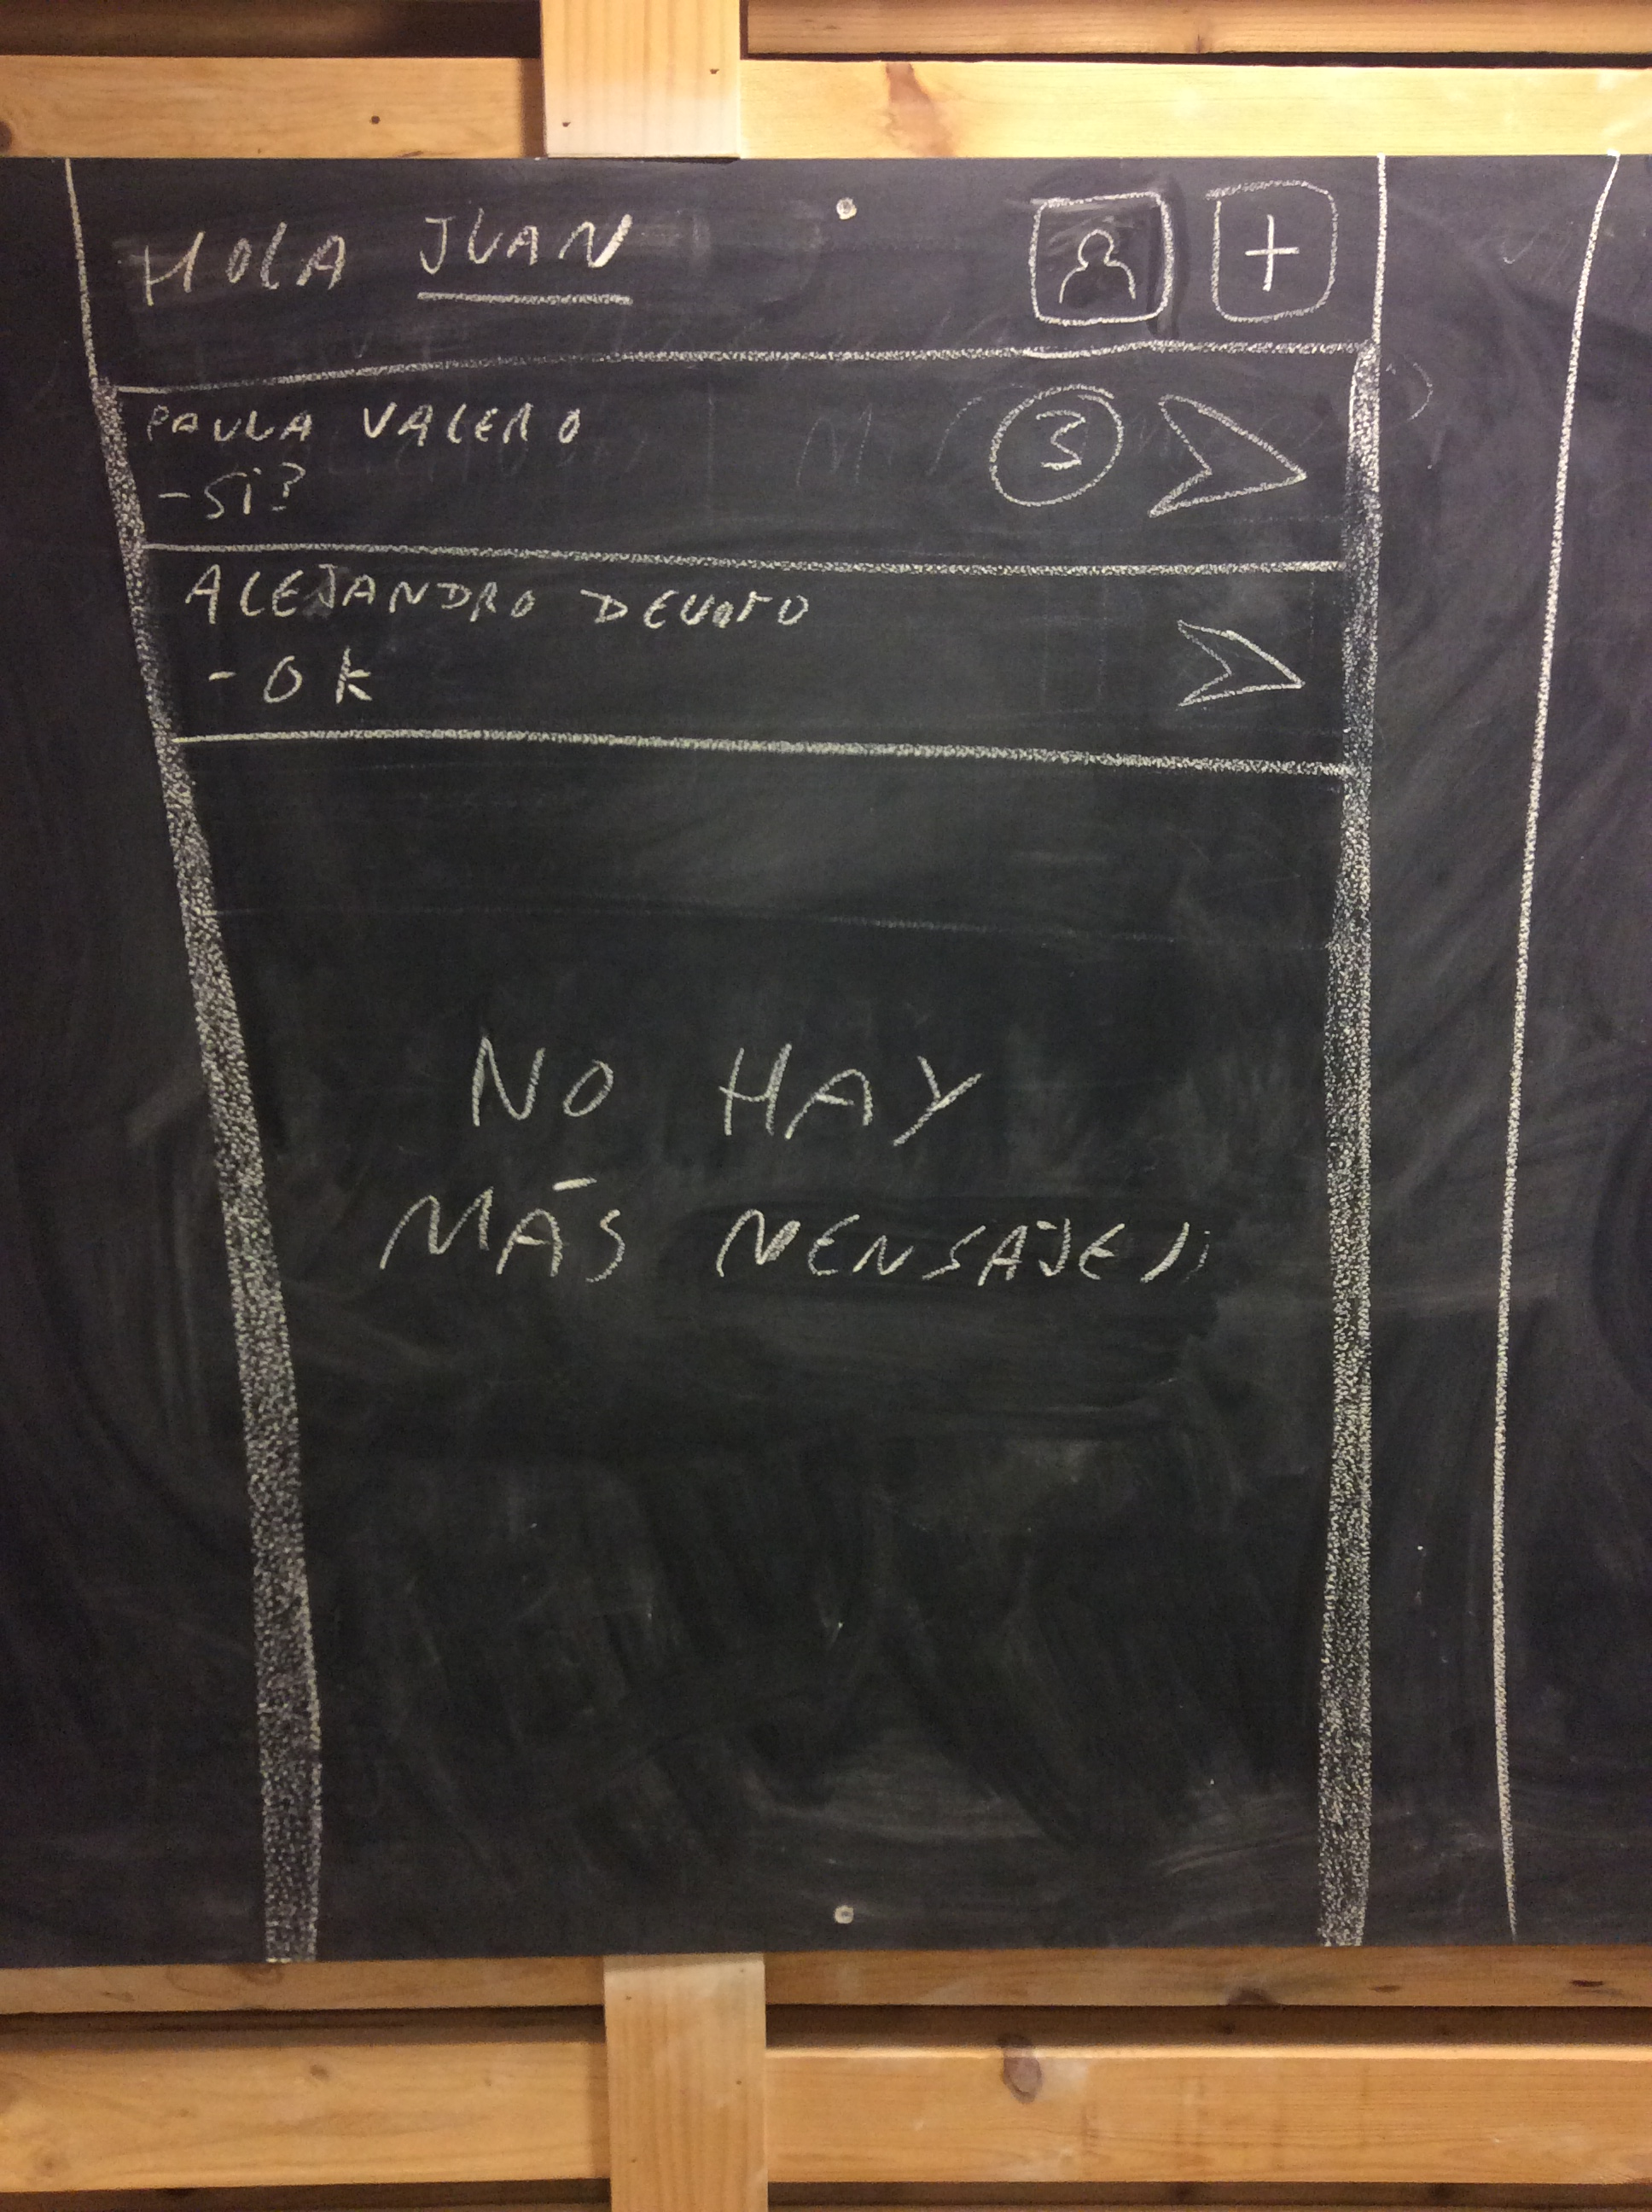 HOLA JUAN
+
PAULA VALERO
3
-Si?
ALEJANDRO DEVOTO
- OK
NO HAY
MÁS MENSAJES